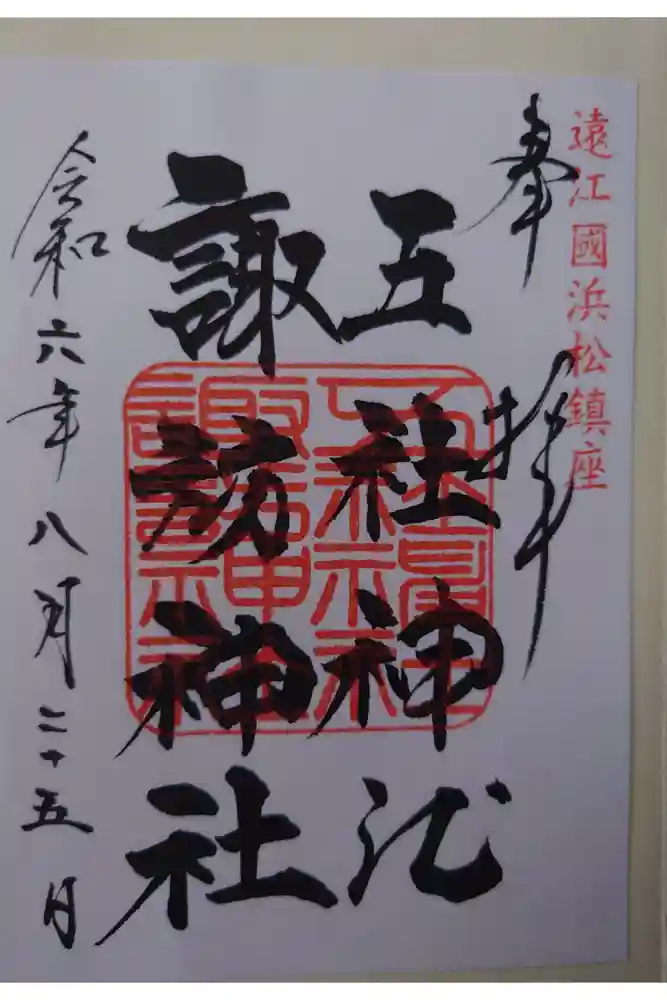 遠江國浜松鎮座
奉拝
五社神社
諏訪神社
令和六年八月二十五日